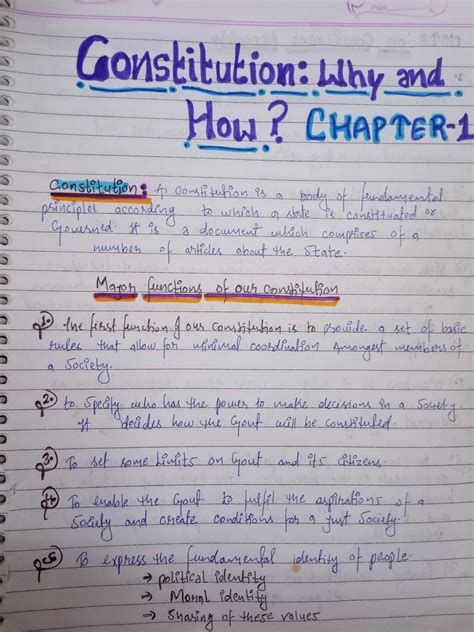 Constitution: Why and
How? CHAPTER-1
Constitution: A Constitution is a body of fundamental
principles according to which a state is constituated or
Governed. It is a document which comprises of a
number of articles about the State.
Major functions of our constitution
1. The first function of our constitution is to provide a set of basic
rules that allow for minimal coordination amongest members of
a Society.
2. to Specify who has the power to make decisions in a Society.
It decides how the Govt will be constituted.
3. To set some limits on Govt and its citizens.
4. To enable the Govt to fulfil the aspirations of a
Society and create conditions for a just Society.
5. To express the fundamental identity of people.
→ political identity
→ Moral identity
→ Sharing of these values